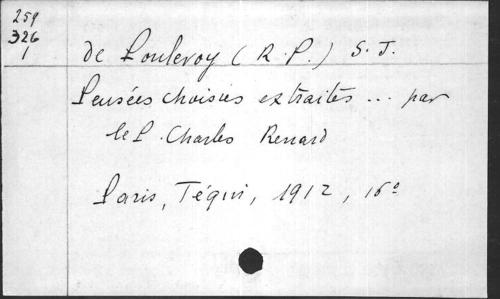 259
326
1
de Ponlevoy (R. P.) S. J.
Pensées choisies extraites ... par
le P. Charles Renard
Paris, Téqui, 1912, 16°